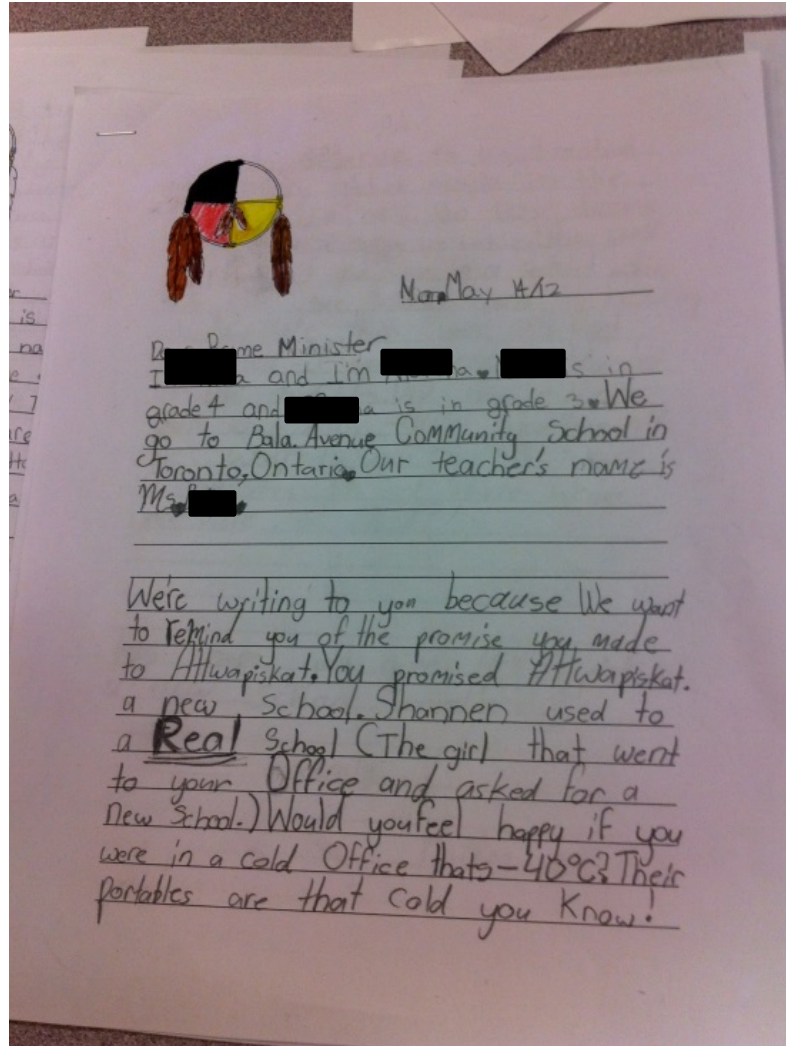 Mon, May 14/12
Dear Prime Minister
I a and I'm a. s in
grade 4 and a is in grade 3. We
go to Bala. Avenue Community School in
Toronto, Ontario. Our teacher's name is
Ms.
We're writing to you because We want
to remind you of the promise you made
to Attwapiskat. You promised Attwapiskat.
a new School. Shannen used to
a Real School (The girl that went
to your Office and asked for a
new School.) Would you feel happy if you
were in a cold Office thats -40°C? Their
portables are that cold you Know!